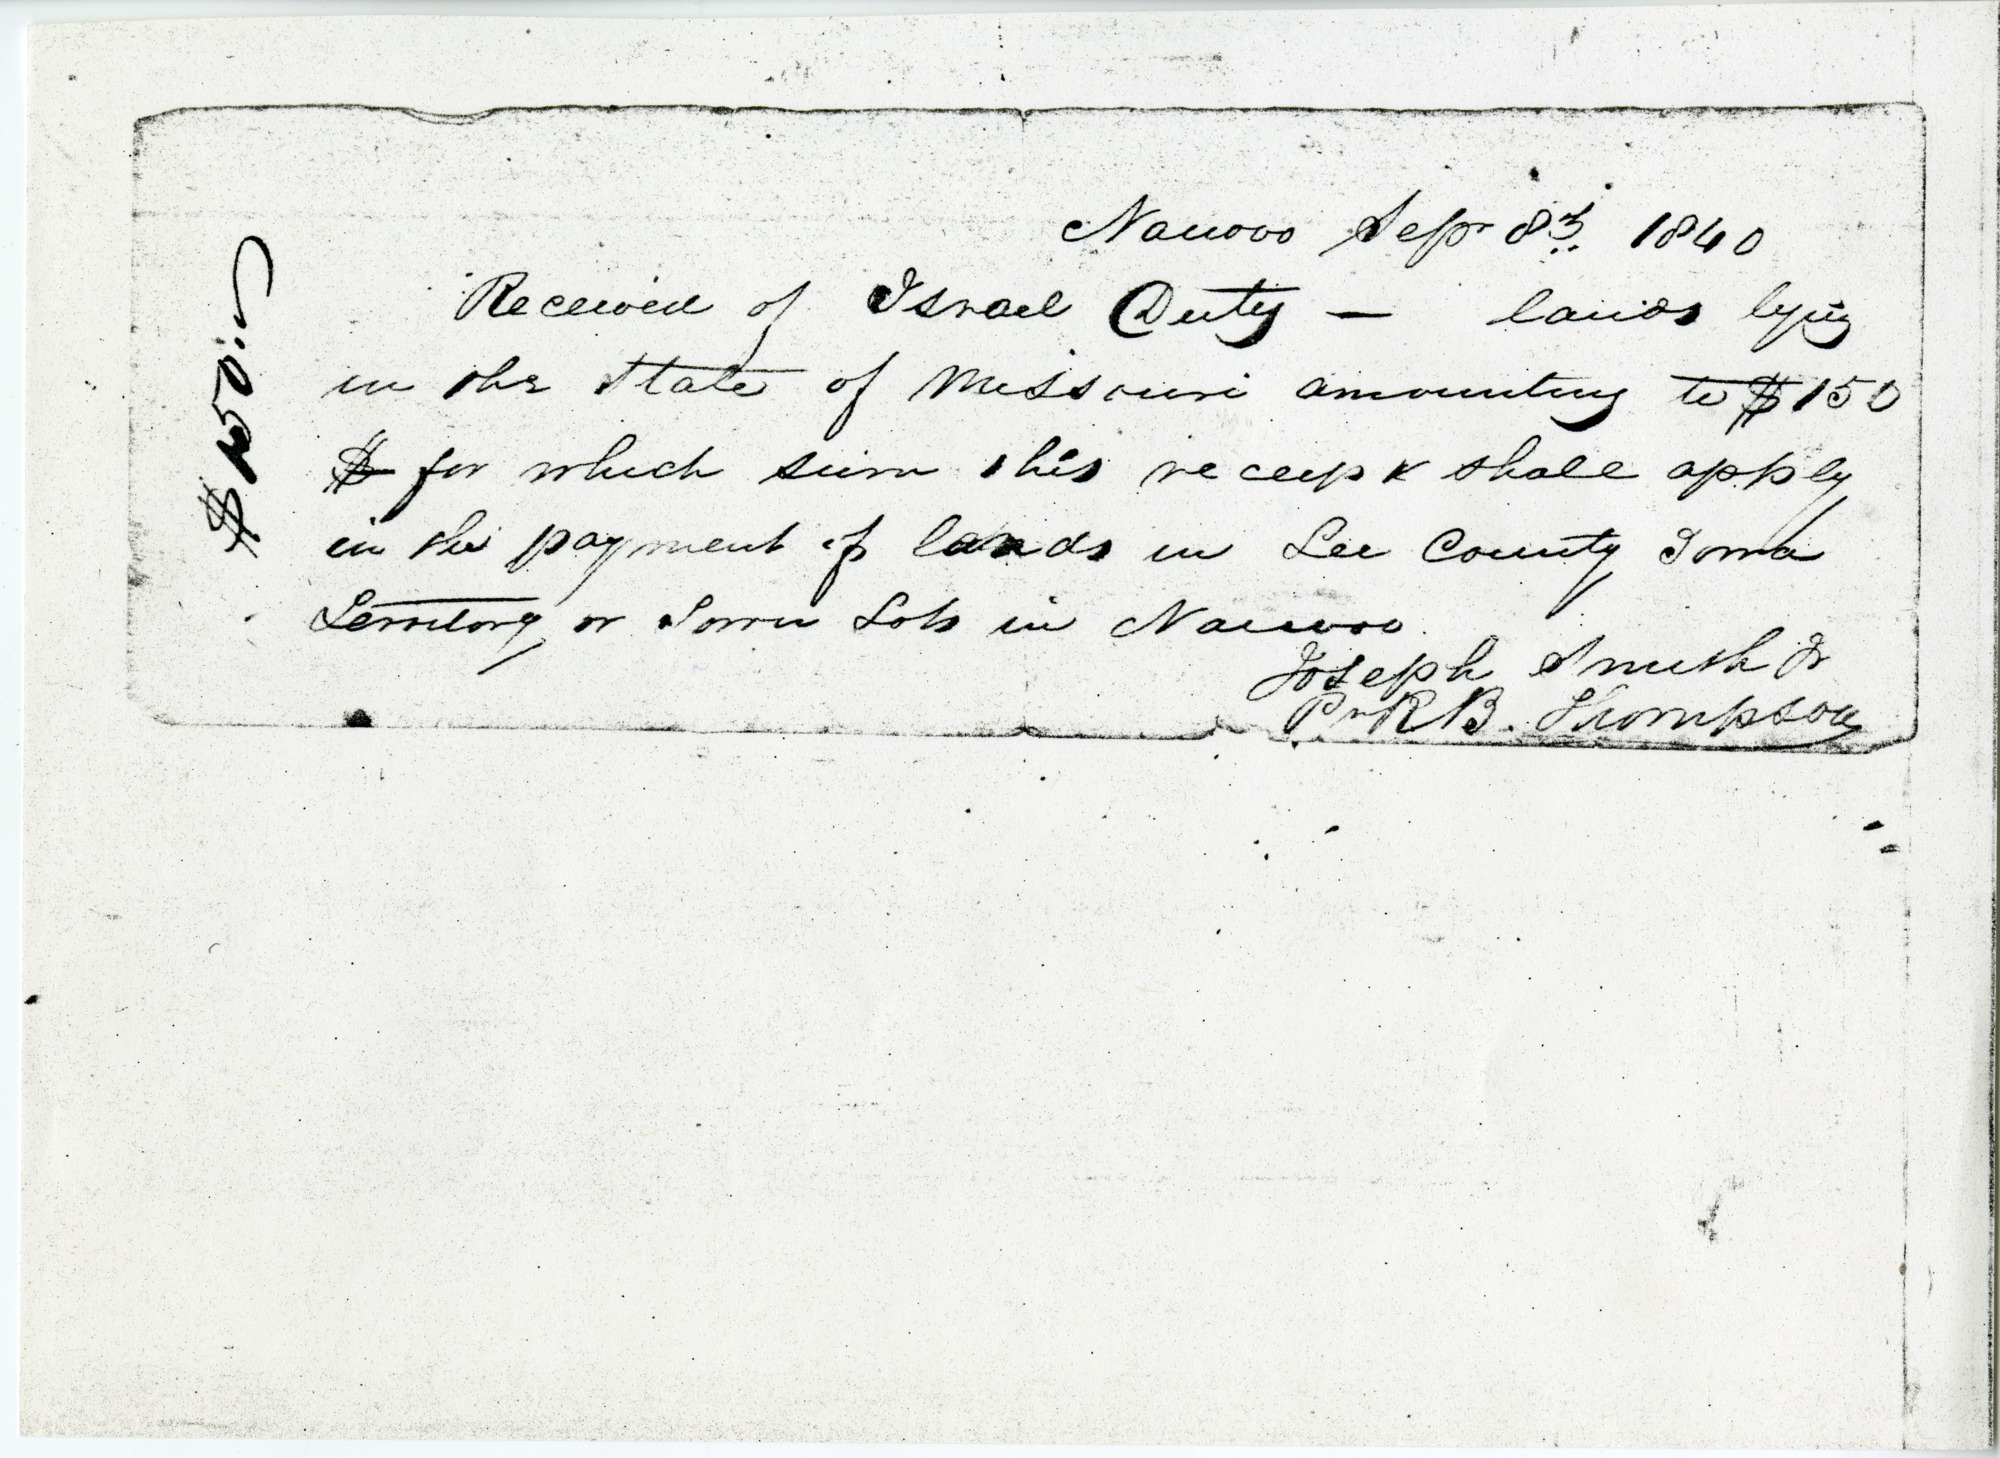 Nauvoo Sepr 8th 1840
Received of Israel Duty — lands lying
in the State of Missouri amounting to $150
$ for which sum this receipt shall apply
in the payment of lands in Lee County Iowa
Territory or Town Lots in Nauvoo
Joseph Smith Jr
Pr R B. Thompson
$150..